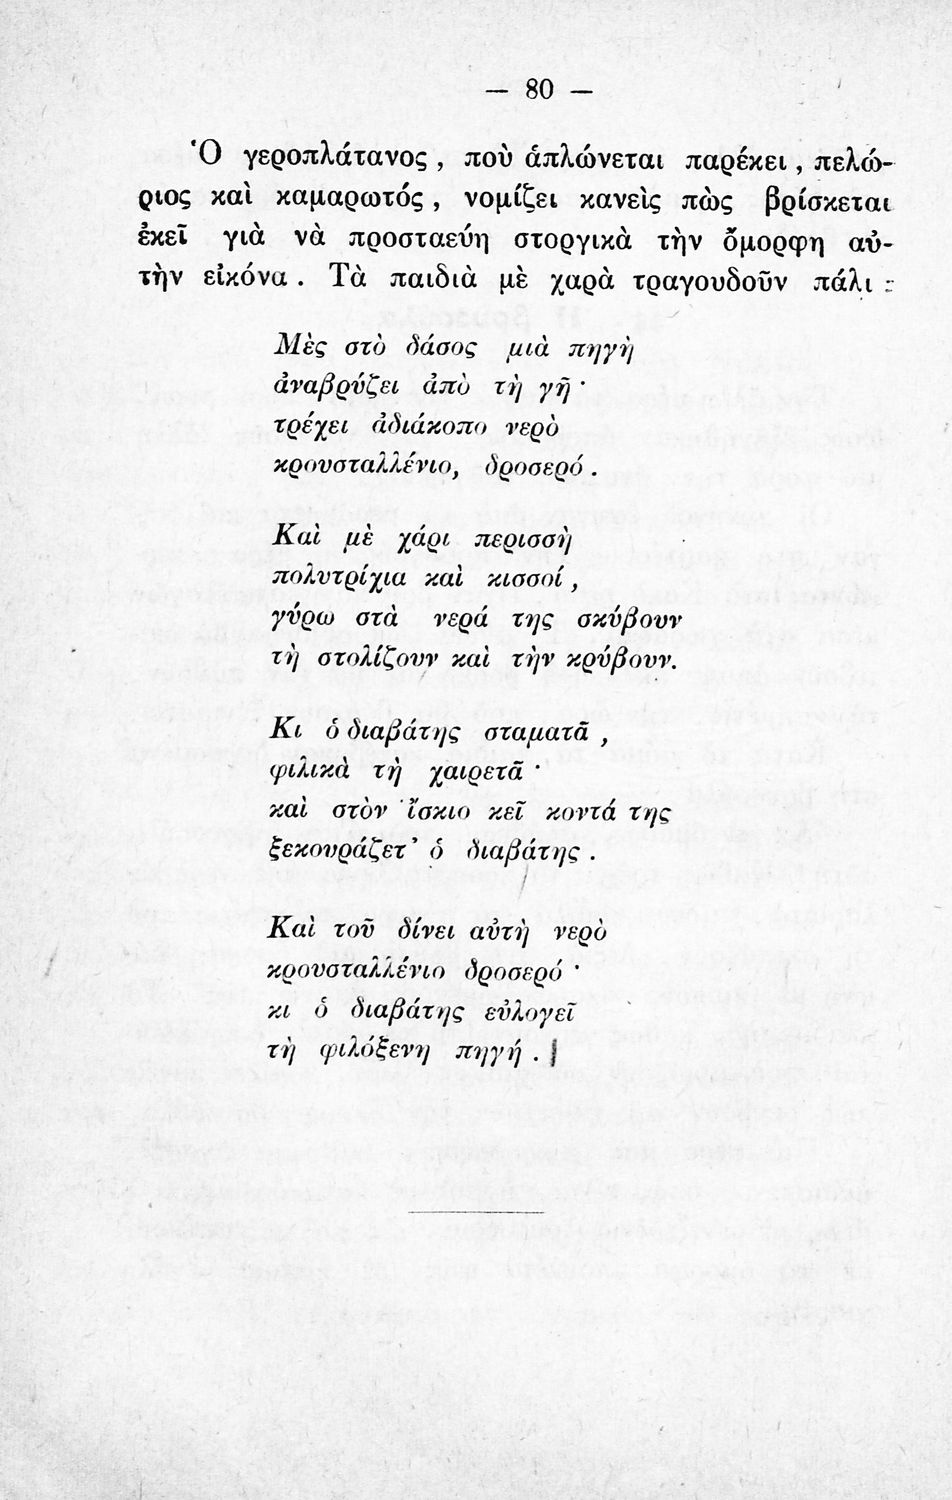 — 80 —
Ὁ γεροπλάτανος , ποὺ ἁπλώνεται παρέκει , πελώ-
ριος καὶ καμαρωτός , νομίζει κανεὶς πὼς βρίσκεται
ἐκεῖ γιὰ νὰ προσταεύη στοργικὰ τὴν ὄμορφη αὐ-
τὴν εἰκόνα . Τὰ παιδιὰ μὲ χαρὰ τραγουδοῦν πάλι :
Μὲς στὸ δάσος μιὰ πηγὴ
ἀναβρύζει ἀπὸ τὴ γῆ ·
τρέχει ἀδιάκοπο νερὸ
κρουσταλλένιο, δροσερό .
Καὶ μὲ χάρι περισσὴ
πολυτρίχια καὶ κισσοί ,
γύρω στὰ νερά της σκύβουν
τὴ στολίζουν καὶ τὴν κρύβουν.
Κι ὁ διαβάτης σταματᾶ ,
φιλικὰ τὴ χαιρετᾶ ·
καὶ στὸν ἴσκιο κεῖ κοντά της
ξεκουράζετ' ὁ διαβάτης .
Καὶ τοῦ δίνει αὐτὴ νερὸ
κρουσταλλένιο δροσερό ·
κι ὁ διαβάτης εὐλογεῖ
τὴ φιλόξενη πηγή .